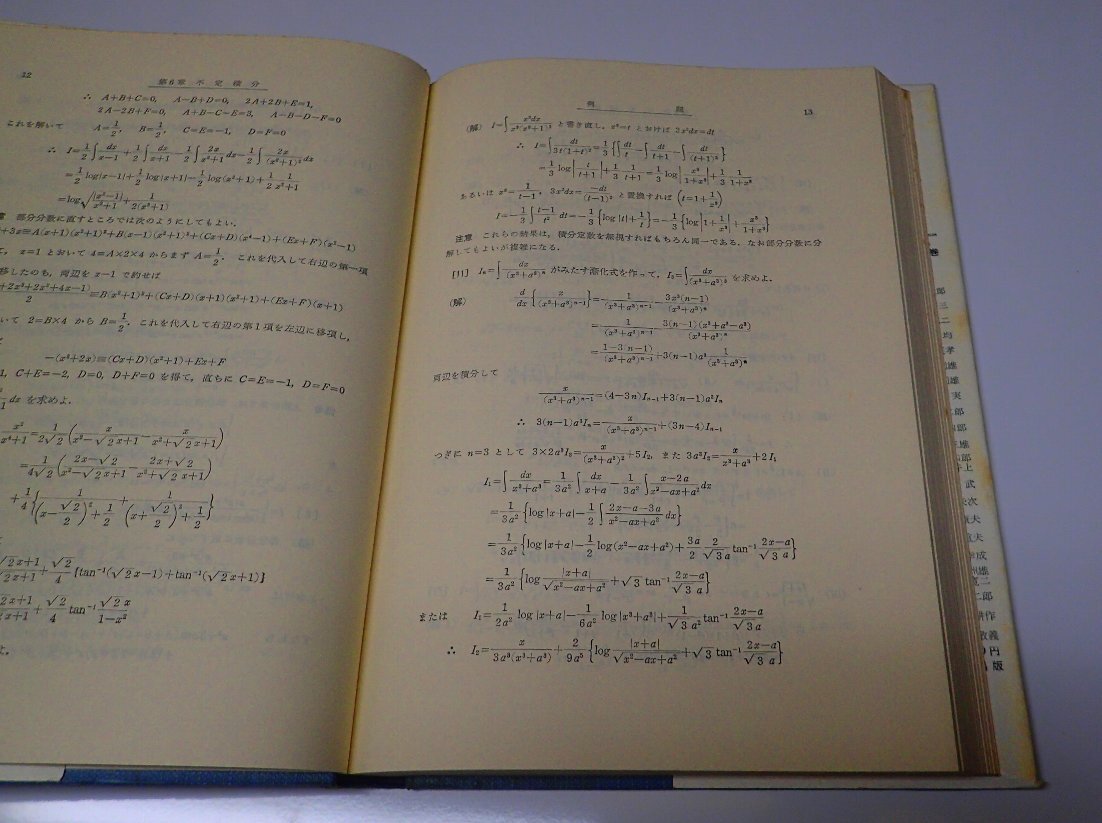 12
第6章 不定積分
∴ A+B+C=0, A−B+D=0, 2A+2B+E=1,
2A−2B+F=0, A+B−C−E=3, A−B−D−F=0
これを解いて A=1/2, B=1/2, C=E=−1, D=F=0
∴ I=1/2∫dx/(x−1)+1/2∫dx/(x+1)−1/2∫2x/(x²+1)dx−1/2∫2x/(x²+1)²dx
=1/2 log|x−1|+1/2 log|x+1|−1/2 log(x²+1)+1/2 1/(x²+1)
=log√(|x²−1|/(x²+1))+1/(2(x²+1))
部分分数に直すところでは次のようにしてもよい.
+3x≡A(x+1)(x²+1)²+B(x−1)(x²+1)²+(Cx+D)(x⁴−1)+(Ex+F)(x²−1)
x=1 とおいて 4=A×2×4 からまず A=1/2. これを代入して右辺の第一項
移したのち, 両辺を x−1 で約せば
+2x³+2x²+4x−1)/2≡B(x²+1)²+(Cx+D)(x+1)(x²+1)+(Ex+F)(x+1)
いて 2=B×4 から B=1/2. これを代入して右辺の第1項を左辺に移項し,
−(x³+2x)≡(Cx+D)(x²+1)+Ex+F
1, C+E=−2, D=0, D+F=0 を得て, 直ちに C=E=−1, D=F=0
dx を求めよ.
x²/(x⁴+1)=1/(2√2)(x/(x²−√2x+1)−x/(x²+√2x+1))
=1/(4√2)((2x−√2)/(x²−√2x+1)−(2x+√2)/(x²+√2x+1))
+1/4{1/((x−√2/2)²+1/2)+1/((x+√2/2)²+1/2)}
√2x+1/√2x+1+√2/4{tan⁻¹(√2x−1)+tan⁻¹(√2x+1)}
2x+1/2x+1+√2/4 tan⁻¹ √2x/(1−x²)
よ.
例題
13
(解) I=∫x²dx/(x³(x³+1)²) と書き直し, x³=t とおけば 3x²dx=dt
∴ I=∫dt/(3t(1+t)²)=1/3{∫dt/t−∫dt/(t+1)−∫dt/(t+1)²}
=1/3 log|t/(t+1)|+1/3 1/(t+1)=1/3 log|x³/(1+x³)|+1/3 1/(1+x³)
あるいは x³=1/(t−1), 3x²dx=−dt/(t−1)² と置換すれば (t=1+1/x³)
I=−1/3∫(t−1)/t² dt=−1/3{log|t|+1/t}=−1/3{log|1+1/x³|+x³/(1+x³)}
注意 これらの結果は, 積分定数を無視すればもちろん同一である. なお部分分数に分
解してもよいが複雑になる.
[11] Iₙ=∫dx/(x³+a³)ⁿ がみたす漸化式を作って, I₃=∫dx/(x³+a³)³ を求めよ.
(解) d/dx{x/(x³+a³)ⁿ⁻¹}=1/(x³+a³)ⁿ⁻¹−3x³(n−1)/(x³+a³)ⁿ
=1/(x³+a³)ⁿ⁻¹−3(n−1)(x³+a³−a³)/(x³+a³)ⁿ
=(1−3(n−1))/(x³+a³)ⁿ⁻¹+3(n−1)a³ 1/(x³+a³)ⁿ
両辺を積分して
x/(x³+a³)ⁿ⁻¹=(4−3n)Iₙ₋₁+3(n−1)a³Iₙ
∴ 3(n−1)a³Iₙ=x/(x³+a³)ⁿ⁻¹+(3n−4)Iₙ₋₁
つぎに n=3 として 3×2a³I₃=x/(x³+a³)²+5I₂, また 3a³I₂=x/(x³+a³)+2I₁
I₁=∫dx/(x³+a³)=1/(3a²)∫dx/(x+a)−1/(3a²)∫(x−2a)/(x²−ax+a²)dx
=1/(3a²){log|x+a|−1/2∫(2x−a−3a)/(x²−ax+a²)dx}
=1/(3a²){log|x+a|−1/2 log(x²−ax+a²)+3a/2 2/(√3a) tan⁻¹(2x−a)/(√3a)}
=1/(3a²){log |x+a|/√(x²−ax+a²)+√3 tan⁻¹(2x−a)/(√3a)}
または I₁=1/(2a²) log|x+a|−1/(6a²) log|x³+a³|+1/(√3a²) tan⁻¹(2x−a)/(√3a)
∴ I₂=x/(3a³(x³+a³))+2/(9a⁵){log |x+a|/√(x²−ax+a²)+√3 tan⁻¹(2x−a)/(√3a)}